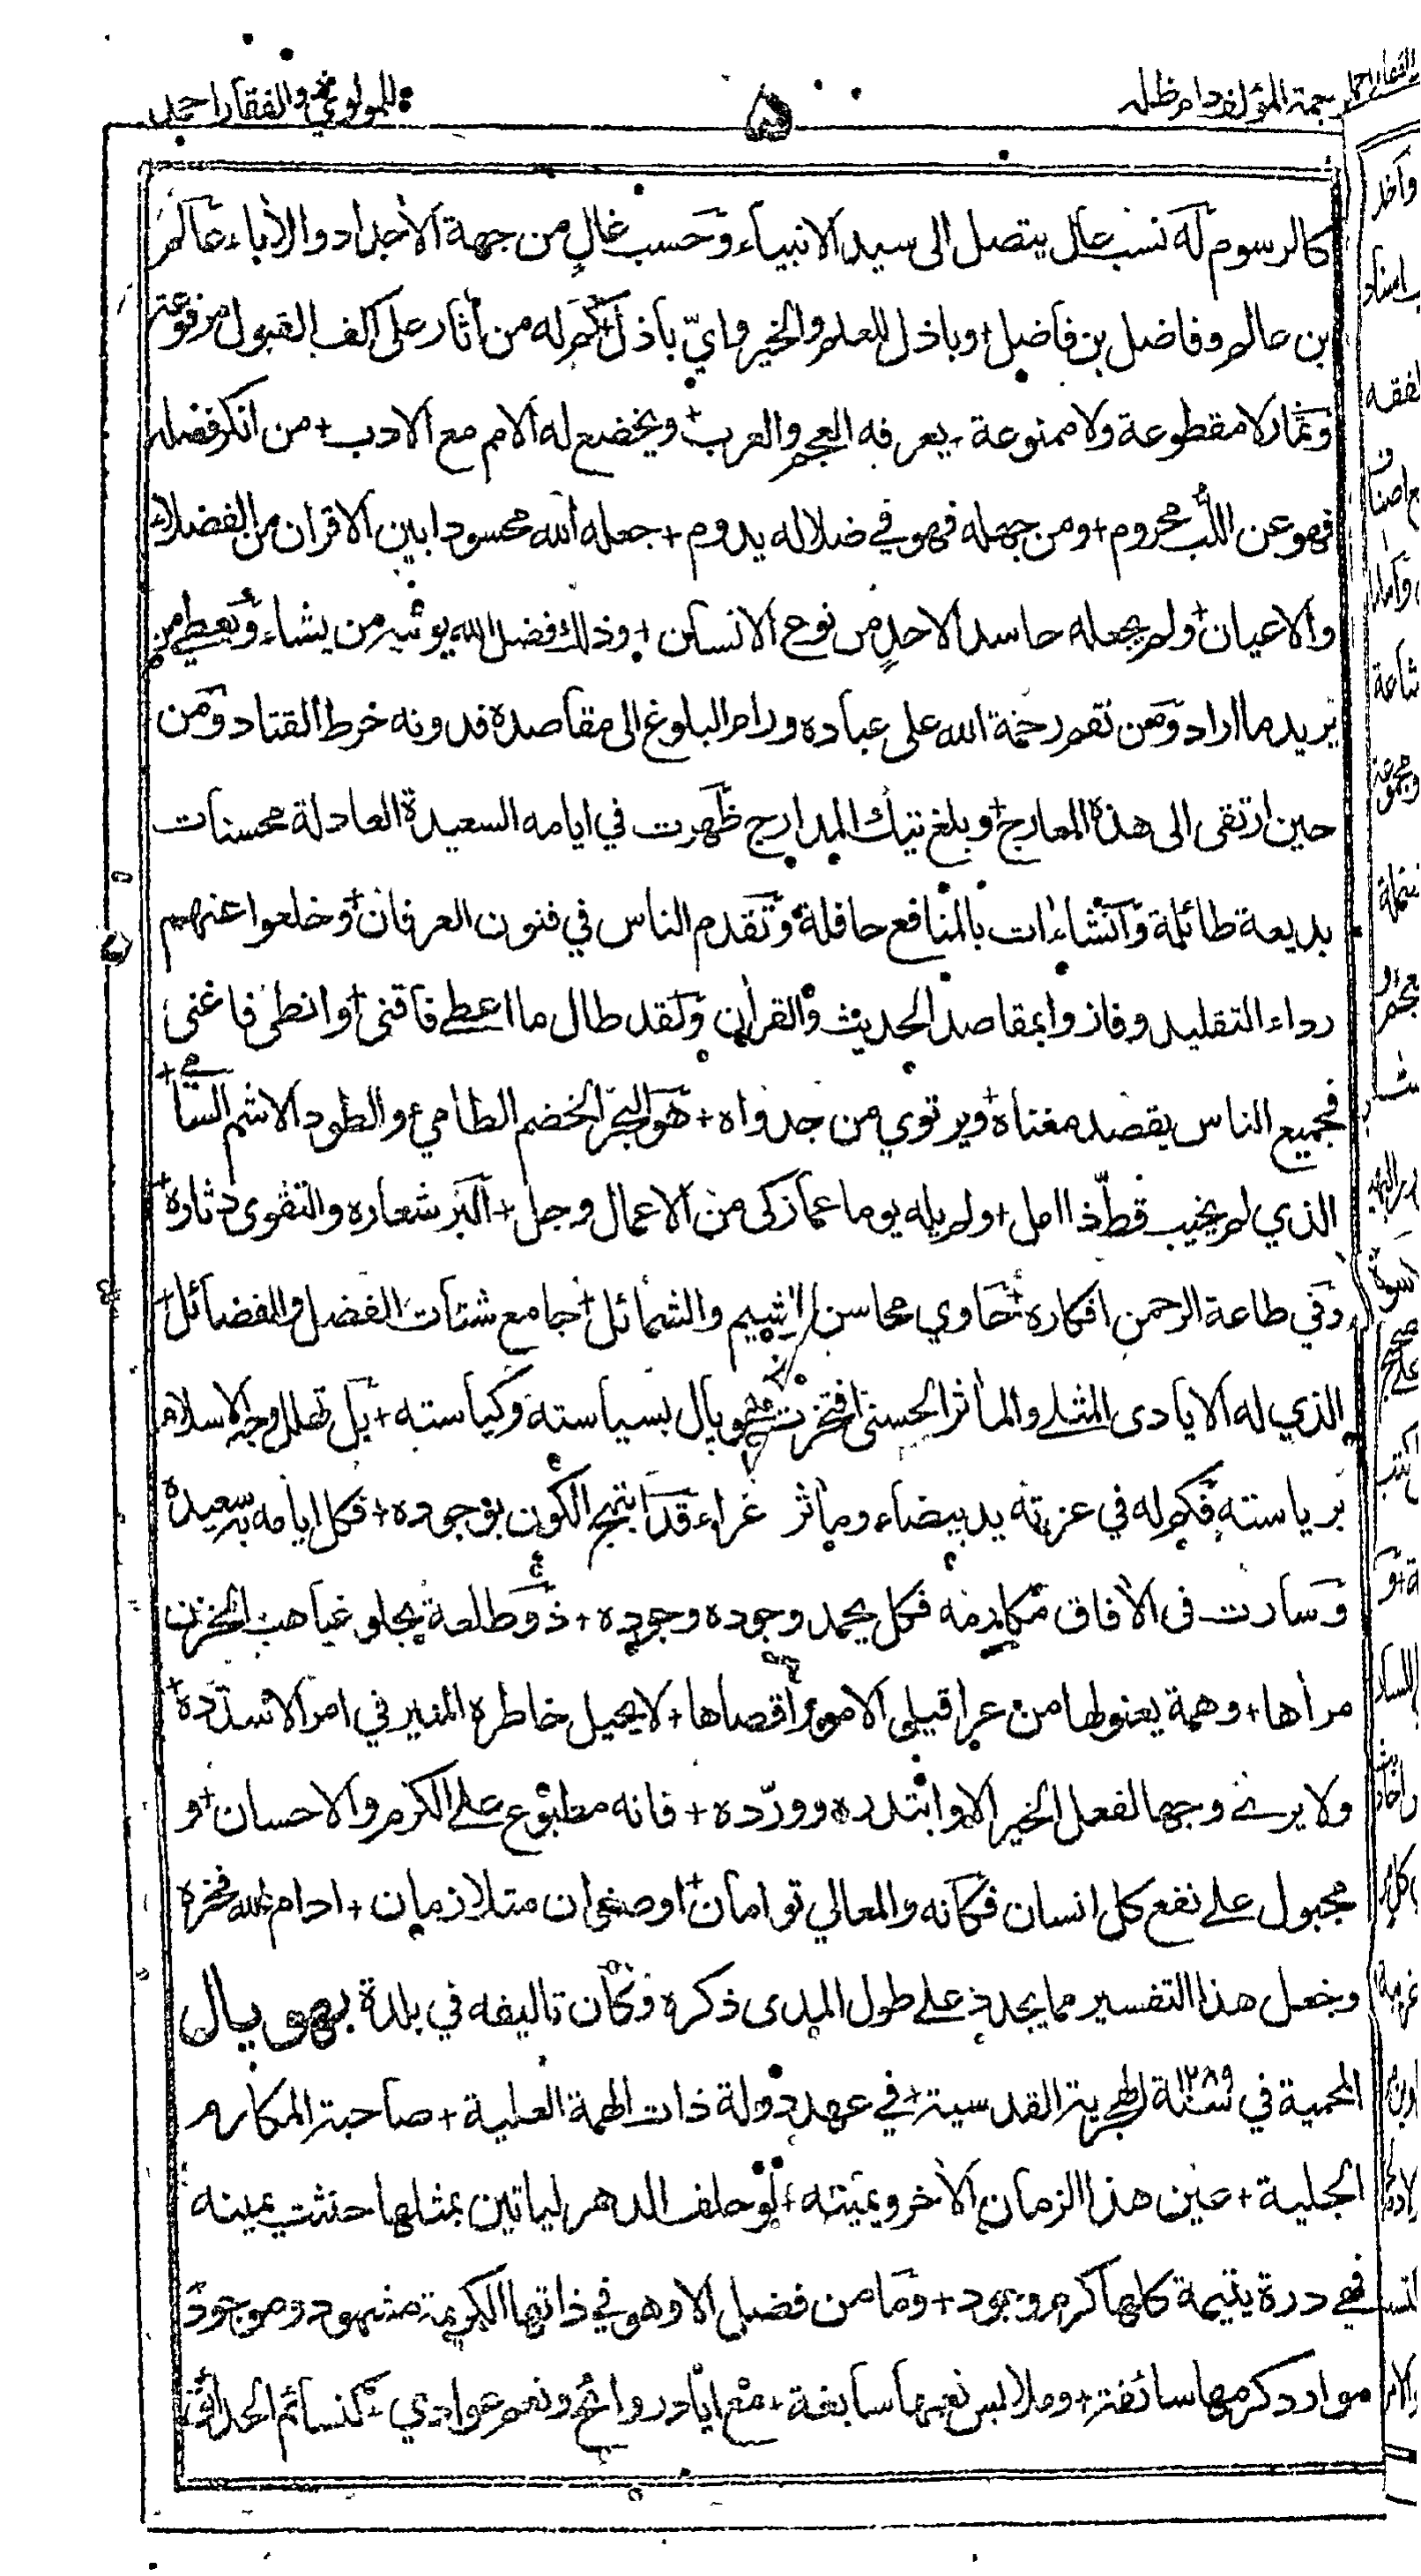 ترجمة المؤلف دام ظله ۵ للمولوي محمد ذو الفقار احمد
كالرسوم له نسب عال يتصل الى سيد الانبياء وحسب غال من جهة الاجداد والاباء عالم
بن عالم وفاضل بن فاضل + وباذل للعلم والخير واي باذل + كم له من اثار على اكف القبول مرفوعة
وثمار لا مقطوعة ولا ممنوعة + يعرفه العجم والعرب + ويخضع له الامم مع الادب + من انكر فضله
فهو عن اللب محروم + ومن جهله فهو في ضلاله يدوم + جعله الله محسودا بين الاقران من الفضلاء
والاعيان + ولم يجعله حاسدا لاحد من نوع الانسان + وذلك فضل الله يوتيه من يشاء ويعطي من
يريد ما اراد ومن نقم رحمة الله على عباده ورام البلوغ الى مقاصده فدونه خرط القتاد ومن
حين ارتقى الى هذه المعارج + وبلغ تيك المدارج ظهرت في ايامه السعيدة العادلة محسنات
بديعة طائلة وانشاءات بالمنافع حافلة وتقدم الناس في فنون العرفان + وخلعوا عنهم
رداء التقليد وفازوا بمقاصد الحديث والقران ولقد طال ما اعطى فاقنى + وانطى فاغنى
فجميع الناس يقصد مغناه + ويرتوي من جدواه + هو البحر الخضم الطامي والطود الاشم السامي +
الذي لم يخيب قط ذا امل + ولم يله يوما عما زكى من الاعمال وجل + البر شعاره والتقوى دثاره +
وفي طاعة الرحمن افكاره + حاوي محاسن الشيم والشمائل + جامع شتات الفضل والفضائل +
الذي له الايادى المثلى والمآثر الحسنى افتخرت بهوپال بسياسته وكياسته + بل تهلل وجه الاسلام
برياسته فكم له في عزته يد بيضاء وماثر غراء قد ابتهج الكون بوجوده + فكل ايامه به سعيدة
وسارت فى الافاق مكارمه فكل يحمد وجوده وجوده + ذو طلعة يجلو غياهب الحزن
مرأها + وهمة يعنو لها من الامور اقصاها + لا يحيل خاطره المنير في امر الا سدده +
ولا يرى وجها لفعل الخير الا وابتدره وورده + فانه مطبوع على الكرم والاحسان + و
مجبول على نفع كل انسان فكانه والمعالي توامان + او صنوان متلازمان + ادام الله فخره
وجعل هذا التفسير مما يجدد على طول المدى ذكره وكان تاليفه في بلدة بهوپال
المحمية في سنة ١٢٨٩ الهجرية القدسية + في عهد دولة ذات الهمة العلية + صاحبة المكارم
الجلية + عين هذا الزمان الاخر ويمينه + لو حلف الدهر لياتين بمثلها حنثت يمينه
فهي درة يتيمة كلها كرم وجود + وما من فضل الا وهو في ذاتها الكريمة مشهود وموجود
موارد كرمها سائغة + وملابس نعمها سابغة + مع اياد روائح ونعم عوادي + كنسائم الحدائق